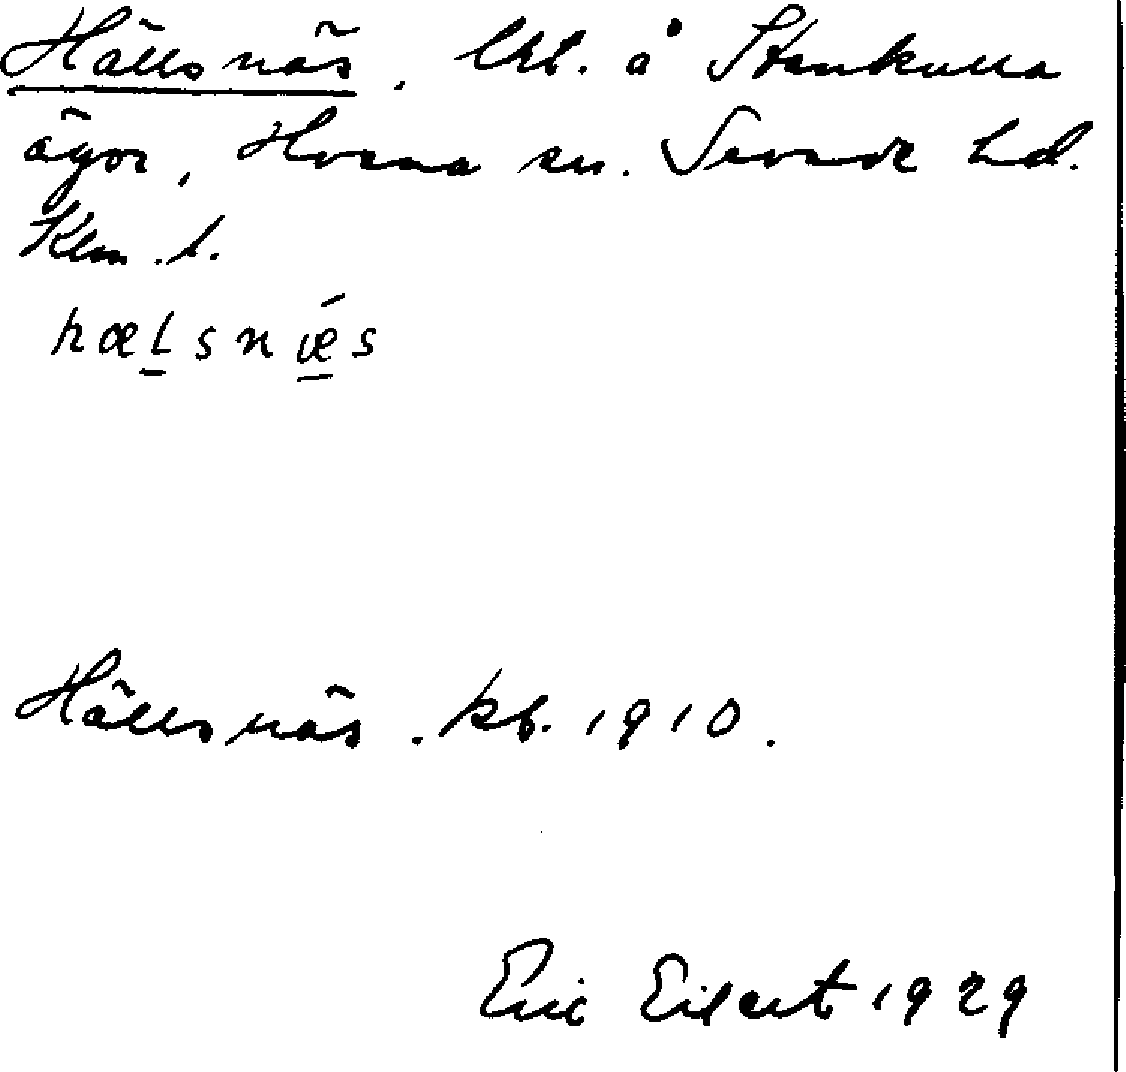 Hällsnäs. lht. å Stenkulla
ägor, Horna sn. Sevede hd.
Klm. l.
hælsnǽs
Hällsnäs. kb. 1910.
Eric Eilert 1929